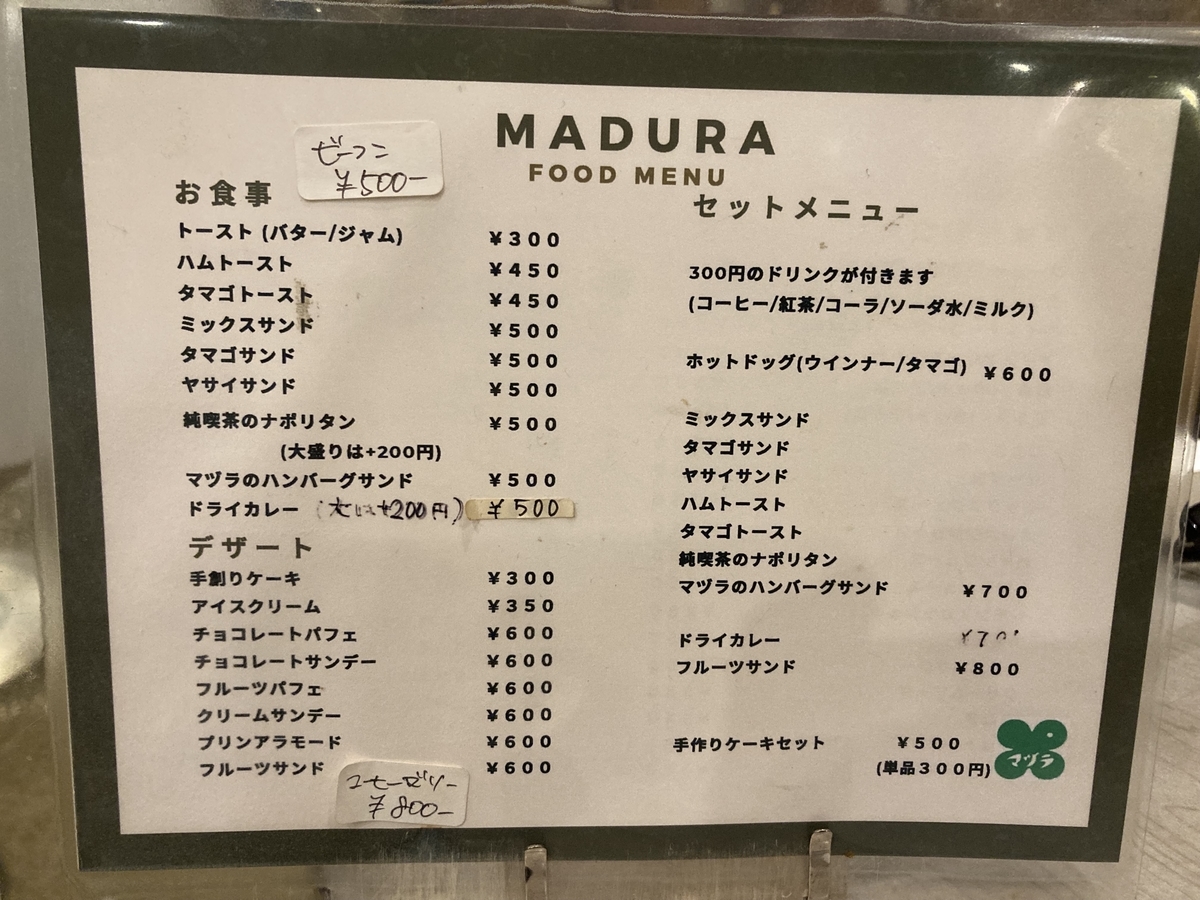 MADURA
FOOD MENU
ビーフン
¥500-
お食事
トースト (バター/ジャム) ¥300
ハムトースト ¥450
タマゴトースト ¥450
ミックスサンド ¥500
タマゴサンド ¥500
ヤサイサンド ¥500
純喫茶のナポリタン ¥500
(大盛りは+200円)
マヅラのハンバーグサンド ¥500
ドライカレー (大は+200円) ¥500
デザート
手創りケーキ ¥300
アイスクリーム ¥350
チョコレートパフェ ¥600
チョコレートサンデー ¥600
フルーツパフェ ¥600
クリームサンデー ¥600
プリンアラモード ¥600
フルーツサンド ¥600
コーヒーゼリー
¥800-
セットメニュー
300円のドリンクが付きます
(コーヒー/紅茶/コーラ/ソーダ水/ミルク)
ホットドッグ(ウインナー/タマゴ) ¥600
ミックスサンド
タマゴサンド
ヤサイサンド
ハムトースト
タマゴトースト
純喫茶のナポリタン
マヅラのハンバーグサンド ¥700
ドライカレー
フルーツサンド ¥800
手作りケーキセット ¥500
(単品300円)
マヅラ